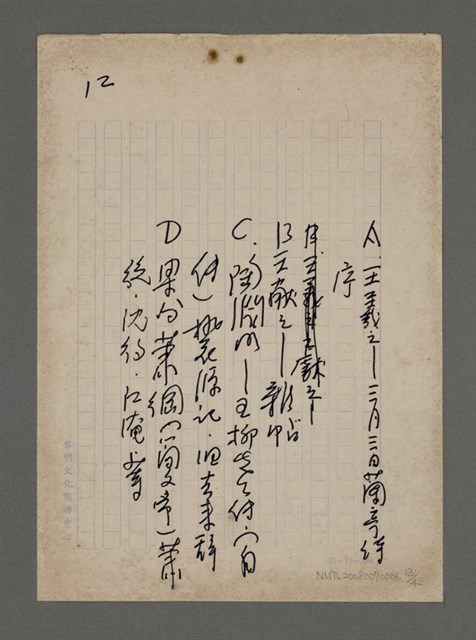 12
A.王羲之—三月三日蘭亭詩
序
B王獻之—雜帖
C.陶淵明—五柳先生傳.(自
傳)桃花源記.歸去來辭
D 蕭綱(簡文帝)蕭
統.沈約.江淹等
NMTL20080010006